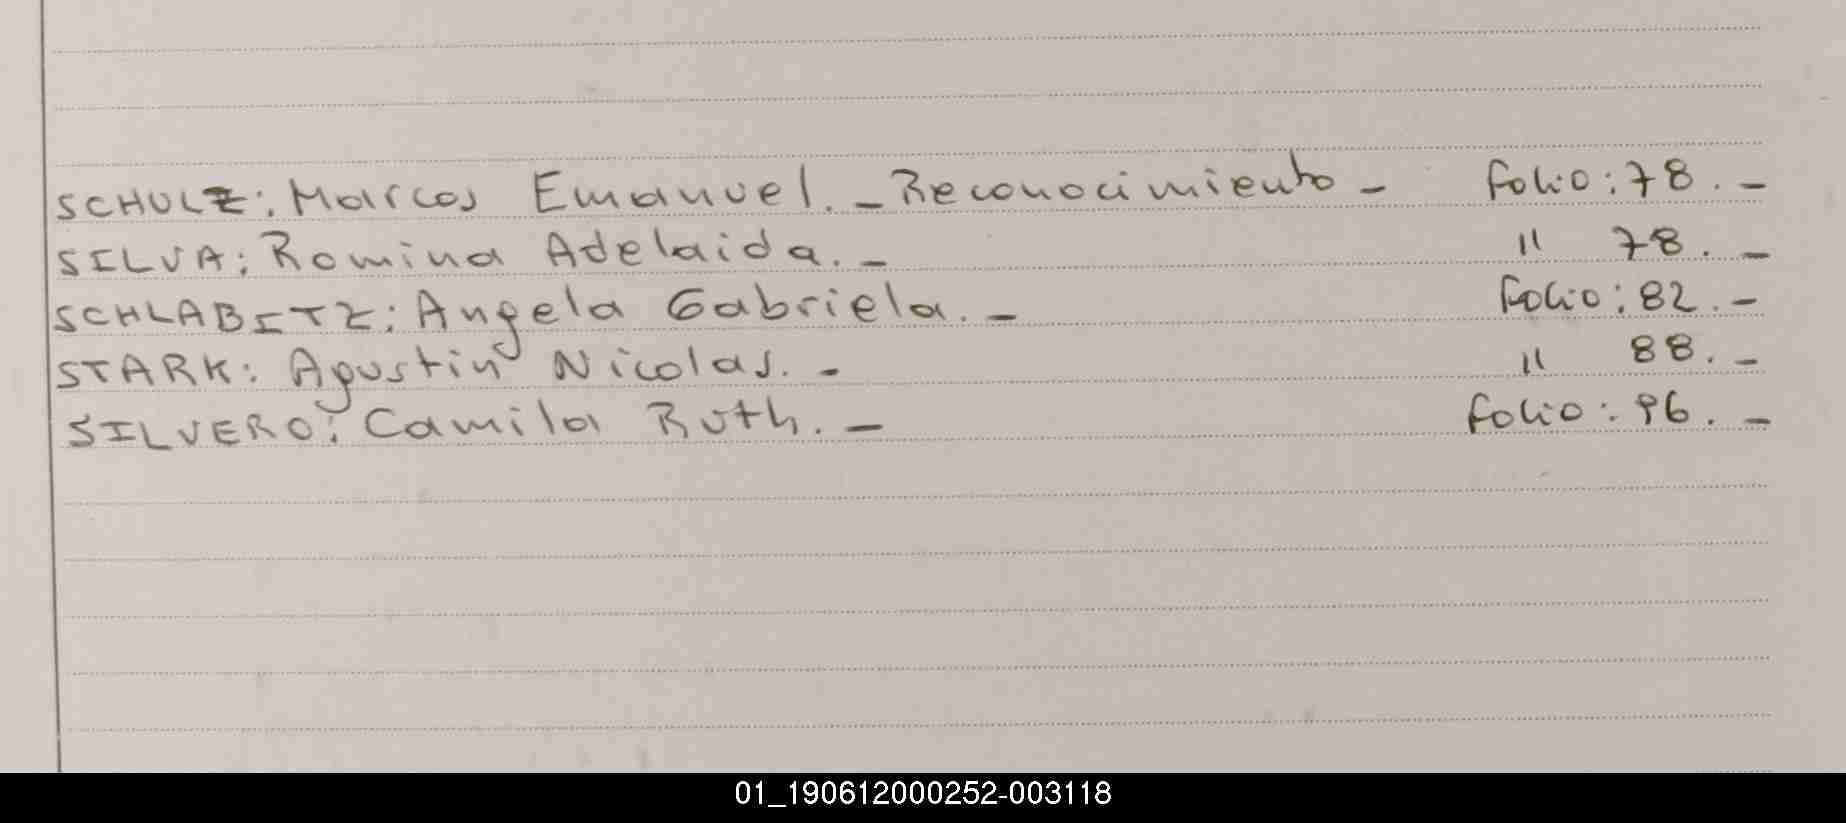 SCHULZ: Marcos Emanuel. _ Reconocimiento - folio: 78. _
SILVA: Romina Adelaida. _ " 78. _
SCHLABITZ: Angela Gabriela. _ folio: 82. _
STARK: Agustin Nicolas. _ " 88. _
SILVERO: Camila Ruth. _ folio: 96. _
01_190612000252-003118